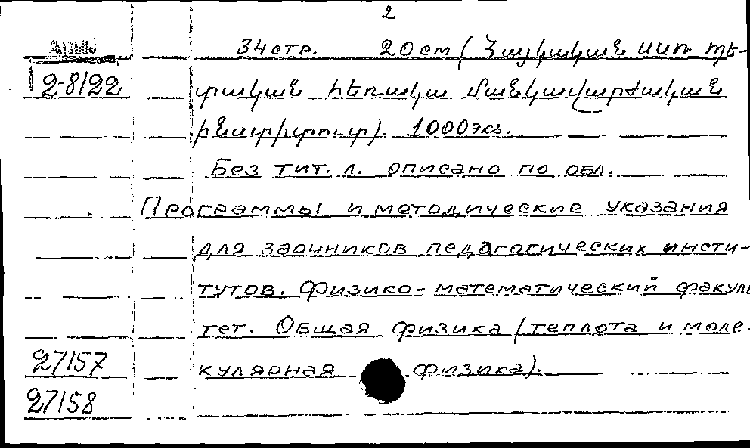 2
34стр. 20см (Հայկական ՍՍՌ պե-
12-8/22
տական հեռակա մանկավարժական
ինստիտուտ). 1000экз.
Без тит. л. описано по обл.
Программы и методические указания
для заочников педагогических инсти-
тутов. Физико-математический факуль
тет. Общая физика (теплота и моле-
27157
кулярная физика).
27158